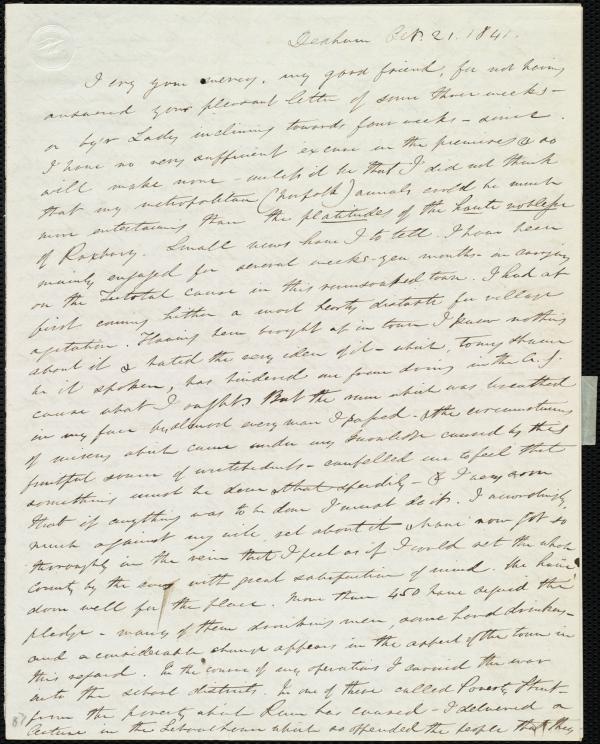 Dedham Oct. 21. 1841.
I cry you mercy, my good friend, for not having
answered your pleasant letter of some three weeks -
or by'r Lady inclining towards four weeks - since.
I have no very sufficient excuse in the premises & so
will make none - unless it be that I did not think
that my metropolitan (Norfolk) annals could be much
more entertaining than the platitudes of the haute noblesse
of Roxbury. Small news have I to tell. I have been
mainly engaged for several weeks - yea months - in carrying
on the Teetotal cause in this rumsoaked town. I had at
first coming hither a most hearty distaste for village
agitation. Having been brought up in town I knew nothing
about it & hated the very idea of it - which, to my shame
be it spoken, has hindered me from doing in the A. S.
cause what I ought. But the rum which was breathed
in my face by almost every man I passed - & the circumstances
of misery which came under my knowledge caused by this
fruitful source of wretchedness - compelled me to feel that
something must be done & that speedily - & I very soon
that if anything was to be done I must do it. I accordingly,
much against my will, set about it & have now got so
thoroughly in the vein that I feel as if I could set the whole
County by the ears with great satisfaction of mind. We have
done well for the place. More than 450 have signed the
pledge - many of them drinking men, some hard drinkers -
and a considerable change appears in the aspect of the town in
this regard. In the course of my operations I carried the war
into the school districts. In one of these called Poverty Street -
from the poverty which Rum has caused - I delivered a
lecture in the Schoolhouse which so offended the people that they